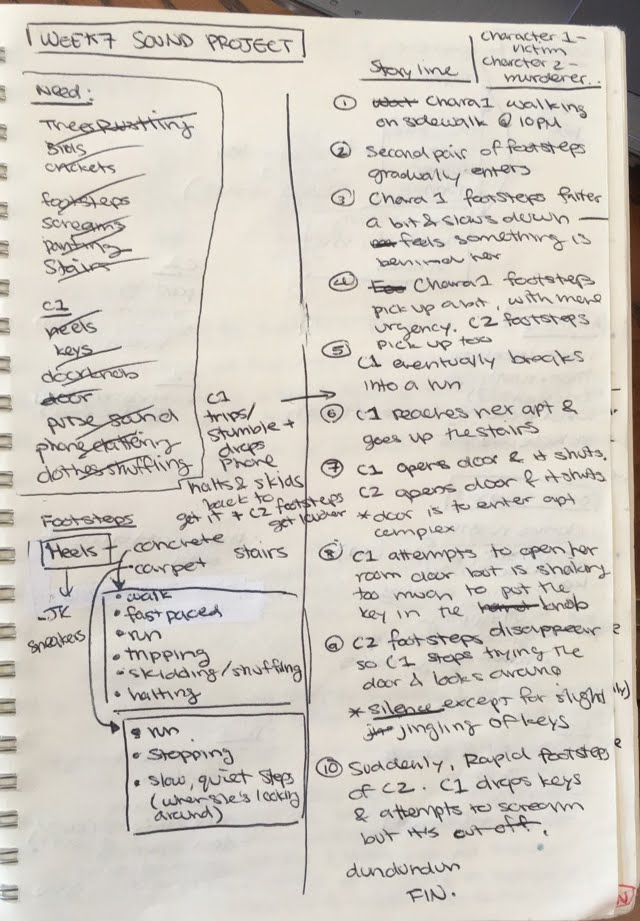 WEEK 7 SOUND PROJECT
Need:
Trees Rustling
Birds
crickets
footsteps
screams
panting
Stairs
C1
heels
keys
doorknob
door
purse sound
phone clattering
clothes shuffling
C1
trips/
stumble +
drops
phone
halts & skids
back to
get it + C2 footsteps
get louder
Footsteps
Heels - concrete stairs
carpet
JK
sneakers
• walk
• fast paced
• run
• tripping
• skidding/shuffling
• halting
• run
• stopping
• slow, quiet steps
(when she's looking
around)
character 1-
victim
charcter 2-
murderer..
Story line
① Chara 1 walking
on sidewalk @ 10PM
② Second pair of footsteps
gradually enters
③ Chara 1 footsteps falter
a bit & slows down —
feels something is
behind her
④ Chara 1 footsteps
pick up a bit, with more
urgency. C2 footsteps
pick up too
⑤ C1 eventually breaks
into a run
⑥ C1 reaches her apt &
goes up the stairs
⑦ C1 opens door & it shuts.
C2 opens door & it shuts
* door is to enter apt
complex
⑧ C1 attempts to open her
room door but is shaking
too much to put the
key in the knob
⑨ C2 footsteps disappear
so C1 stops trying the
door & looks around
* Silence except for slight
jingling of keys
⑩ Suddenly, Rapid footsteps
of C2. C1 drops keys
& attempts to scream
but it's cut off.
dundundun
FIN.